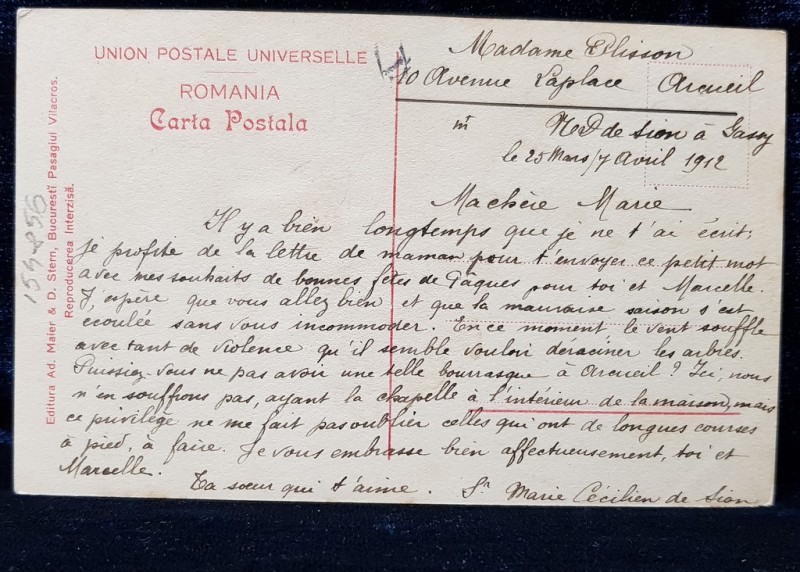 UNION POSTALE UNIVERSELLE
ROMANIA
Carta Postala
Madame Plisson
10 Avenue Laplace Arcueil
N D de Sion à Jassy
le 25 Mars/7 Avril 1912
Ma chère Marie
Il y a bien longtemps que je ne t'ai écrit;
je profite de la lettre de maman pour t'envoyer ce petit mot
avec mes souhaits de bonnes fêtes de Pâques pour toi et Marcelle.
J'espère que vous allez bien et que la mauvaise saison s'est
écoulée sans vous incommoder. En ce moment le vent souffle
avec tant de violence qu'il semble vouloir déraciner les arbres.
Puissiez-vous ne pas avoir une telle bourrasque à Arcueil? Ici, nous
n'en souffrons pas, ayant la chapelle à l'intérieur de la maison, mais
ce privilège ne me fait pas oublier celles qui ont de longues courses
à pied, à faire. Je vous embrasse bien affectueusement, toi et
Marcelle. Ta sœur qui t'aime. Sr Marie Cécilien de Sion
Editura Ad. Maier & D. Stern, Bucureştĭ Pasagiul Vilacros.
Reproducerea Interzisă.